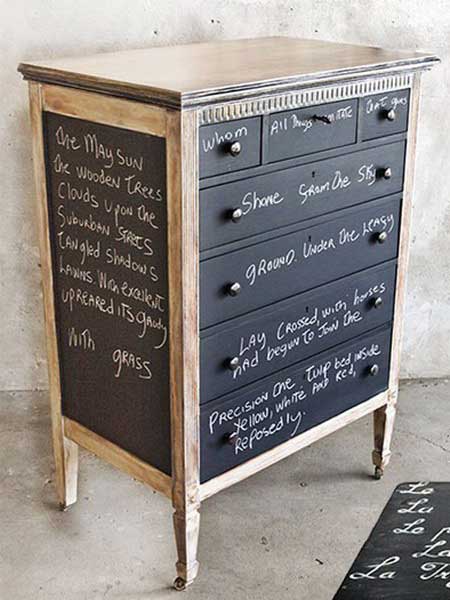 The May Sun
The wooden Trees
Clouds Upon the
Suburban Streets
Tangled Shadows
Lawns. With excellent
upreared its gawdy
With grass
Whom
All Things imitate
That guys
Shone from the sky
Ground. Under the Leafy
Lay Crossed, with horses
Had begun to Join the
Precision the Tulip bed inside
Yellow, white and Red,
Reposedly.
La
La
Le
La
La Tr